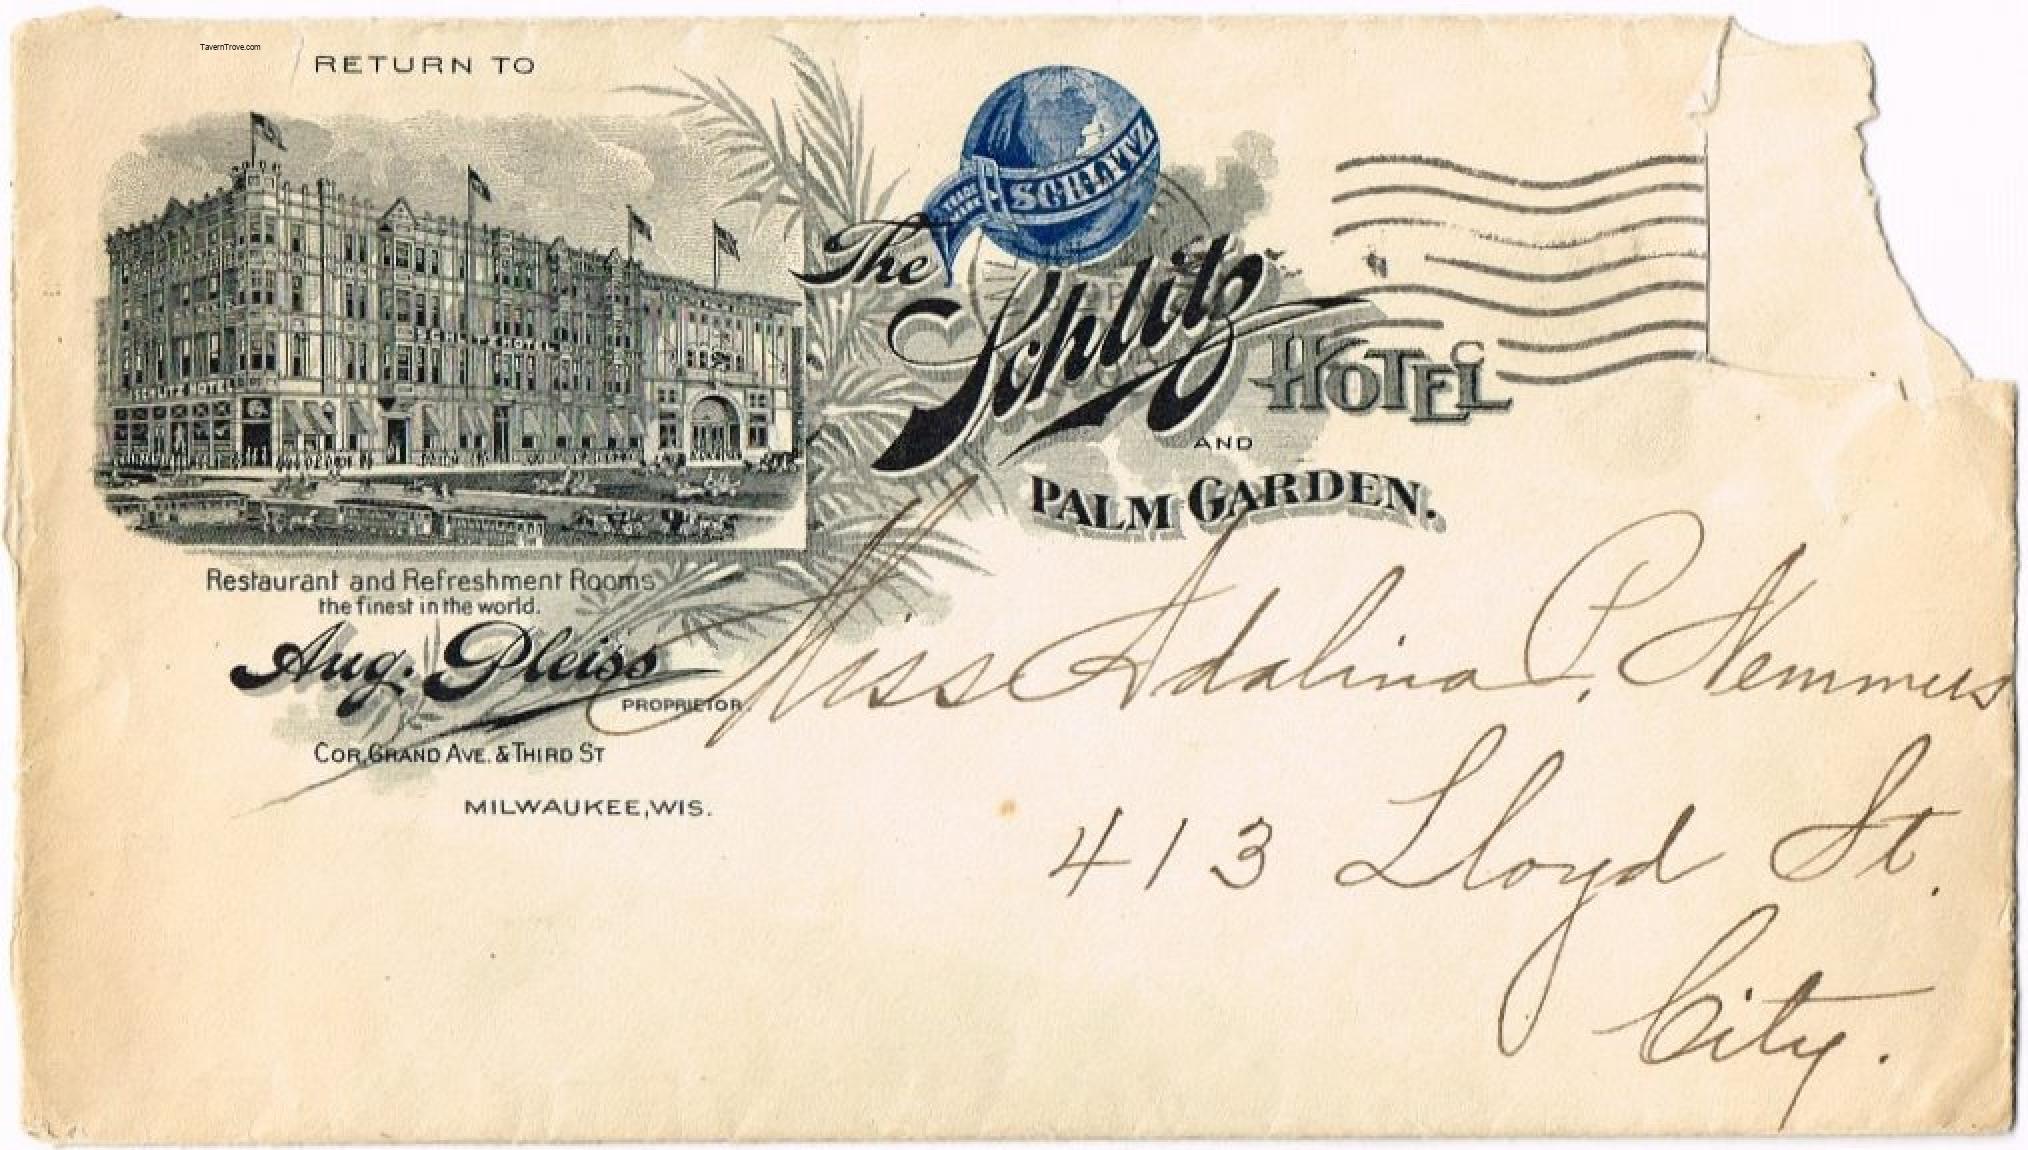 TavernTrove.com
RETURN TO
SCHLITZ
TRADE MARK
The Schlitz HOTEL
AND
PALM GARDEN.
SCHLITZ HOTEL
SCHLITZ HOTEL
Restaurant and Refreshment Rooms
the finest in the world.
Aug. Pleiss
PROPRIETOR.
COR. GRAND AVE. & THIRD ST
MILWAUKEE, WIS.
Miss Adalina P. Nemmers
413 Lloyd St.
City.